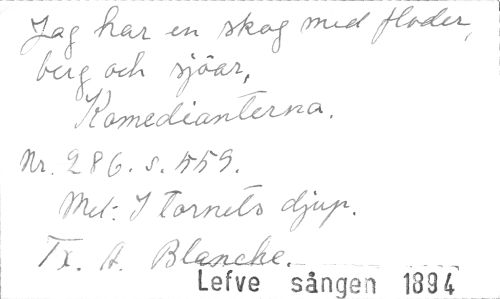 Jag har en skog med floder,
berg och sjöar,
Komedianterna.
Nr. 286. s. 559.
Mel: I tornets djup.
Tx. A. Blanche.
Lefve sången 1894